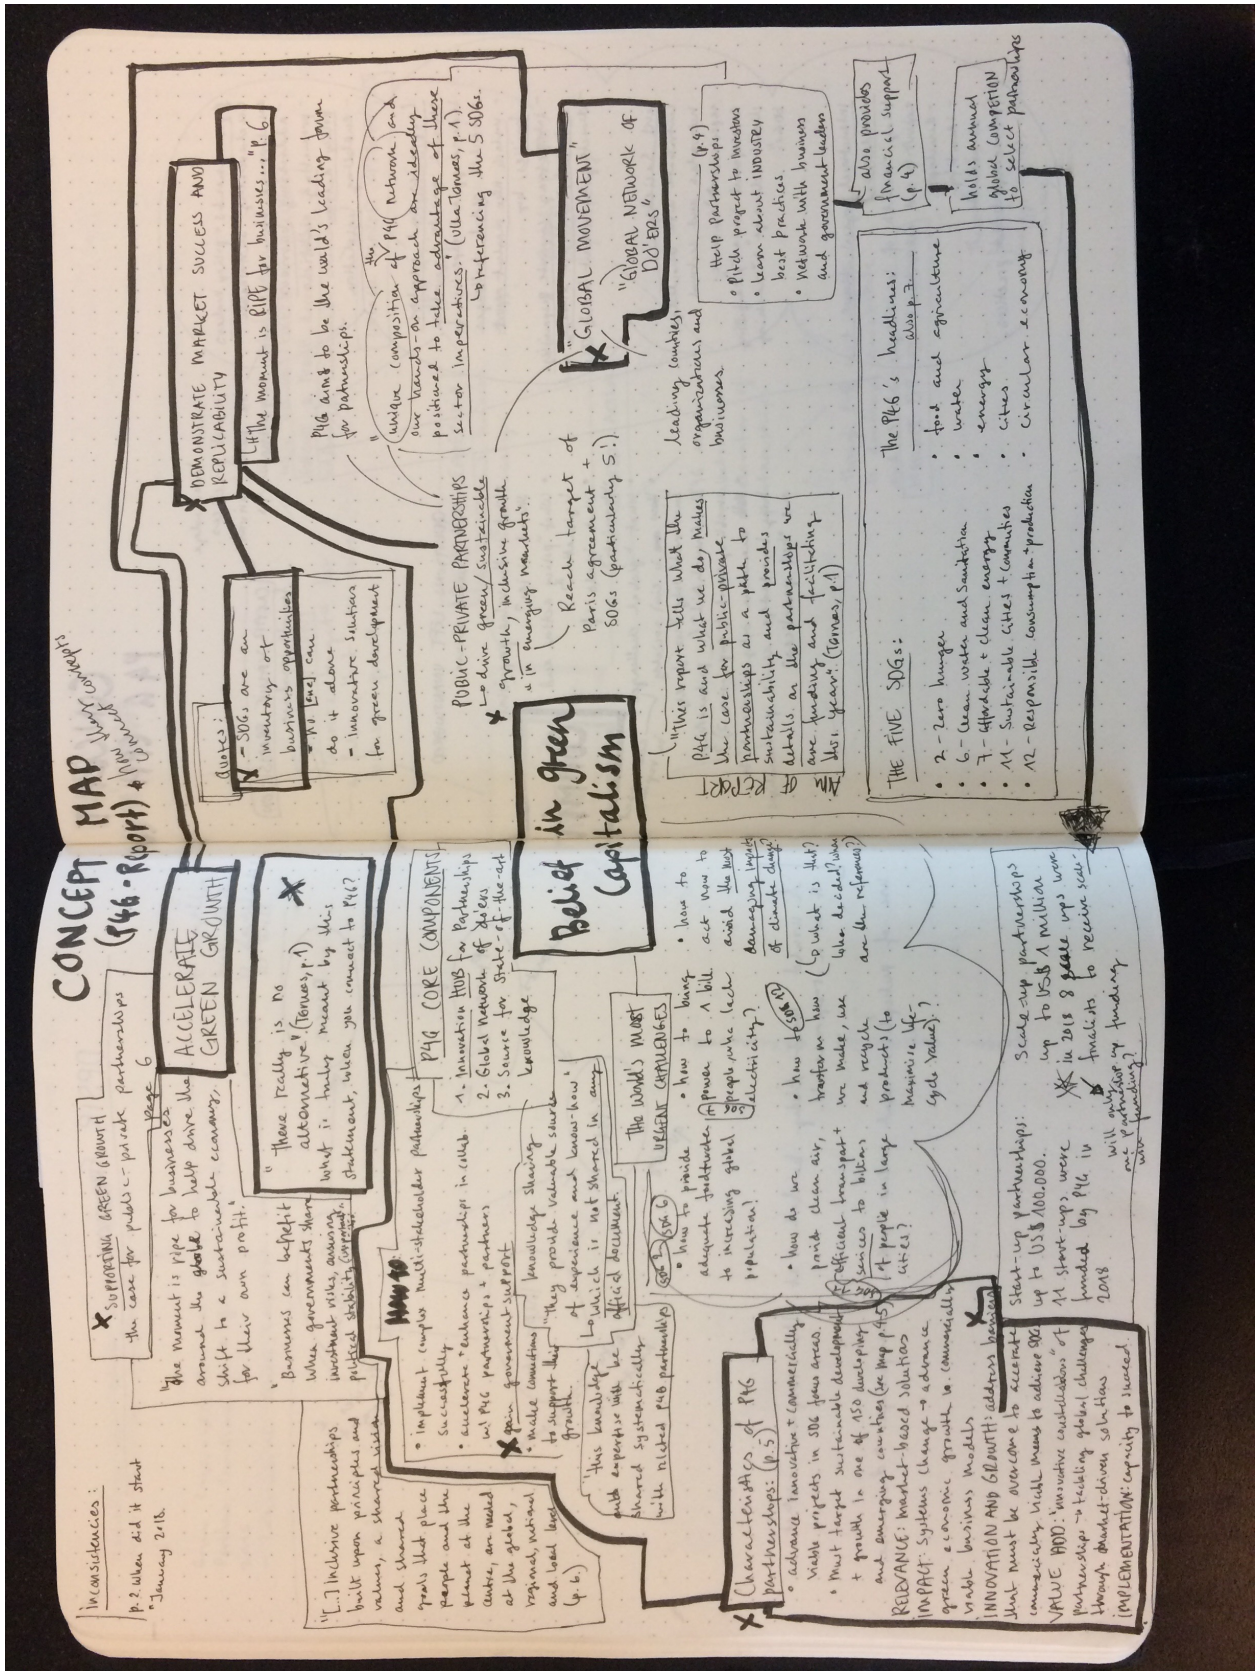 CONCEPT MAP
(P4G-Report) + how they connect
key concepts
inconsistencies:
p. 2. When did it start
"January 2018.
"[..] Inclusive partnerships
built upon principles and
values, a shared vision
and shared
goals that place
people and the
planet at the
centre, are needed
at the global,
regional, national
and local level
(p. 6.)
SUPPORTING GREEN GROWTH
the case for public-private partnerships
page 6
"The moment is ripe for businesses
around the globe to help drive the
shift to a sustainable economy,
for their own profit."
"Businesses can benefit
when governments share
investment risks, ensuring
political stability
ACCELERATE
GREEN GROWTH
"There really is no
alternative" (Tornæs, p.1)
what is truly meant by this
statement, when you connect to P4G?
HOW TO:
• implement complex multi-stakeholder partnerships
successfully
• accelerate + enhance partnerships in collab.
w/ P4G partnerships + partners
gain government support
• make connections
to support their
growth.
knowledge sharing
"They provide valuable source
of experience and know-how"
↳ which is not shared in any
official document.
"This knowledge
and expertise will be
shared systematically
with related P4G partnerships
P4G CORE COMPONENTS
1. Innovation HUB for Partnerships
2. Global Network of do'ers
3. Source for State-of-the-art
knowledge
Belief in green
Capitalism
THE WORLD'S MOST
URGENT CHALLENGES
SDG 2
SDG 6
• how to provide
adequate food + water
to increasing global
population?
• how to bring
power to 1 bill.
people who lack
electricity?
SDG 7
• how to
act now to
avoid the most
damaging impacts
of climate change?
(↳ what is that?
who decided? where
are the references?)
• how do we
provide clean air,
efficient transport +
services to billions
of people in large
cities?
SDG 11
• how to
SDG 12
transform how
we make, use
and recycle
products (to
maximise life-
cycle value)?
Characteristics of P4G
partnerships: (p.5)
• advance innovative + commercially
viable projects in SDG focus areas.
• Must target sustainable development
+ growth in one of 150 developing
and emerging countries (see map p.45)
RELEVANCE: market-based solutions
IMPACT: Systems change → advance
green economic growth via commercially
viable business models
INNOVATION AND GROWTH: address barriers
that must be overcome to accelerate
commercially viable means to achieve SDGs
VALUE ADD: "innovative constellations" of
partnerships → tackling global challenges
through market-driven solutions
IMPLEMENTATION: capacity to succeed.
Start-up partnerships:
up to US$ 100.000.
11 start-ups were
funded by P4G in
2018
Scale-up partnerships
up to US$ 1 million
in 2018 8 scale ups were
finalists to receive scale-
up funding
will only
one partnership
win funding?
DEMONSTRATE MARKET SUCCESS AND
REPLICABILITY
↳ "The moment is RIPE for businesses..." p. 6
quotes:
- SDGs are an
inventory of
business opportunities
- No [one] can
do it alone
- innovative solutions
for green development
P4G aims to be the world's leading forum
for partnerships.
"unique composition of the P4G network and
our hands-on approach are ideally
positioned to take advantage of these
sector imperatives." (Ulla Tornæs, p.1)
↳ referencing the 5 SDGs.
PUBLIC-PRIVATE PARTNERSHIPS
↳ drive green/sustainable
growth, inclusive growth
"in emerging markets".
Reach target of
Paris agreement +
SDGs (particularly 5!)
"GLOBAL MOVEMENT"
"GLOBAL NETWORK OF
DO'ERS"
leading countries,
organizations and
businesses.
Help Partnerships (p.4)
• Pitch project to investors
• learn about INDUSTRY
best practices
• network with business
and government leaders
also provides
financial support
(p. 4)
holds annual
global competition
to select partnerships
AIM OF REPORT
"This report tells what the
P4G is and what we do, makes
the case for public-private
partnerships as a path to
sustainability and provides
details on the partnerships we
are funding and facilitating
this year". (Tornæs, p.1)
THE FIVE SDGs:
• 2 - Zero hunger
• 6 - Clean water and Sanitation
• 7 - Affordable + clean energy
• 11 - Sustainable cities + Communities
• 12 - Responsible consumption + production
The P4G's headlines:
also p.7.
• food and agriculture
• water
• energy
• cities
• circular economy